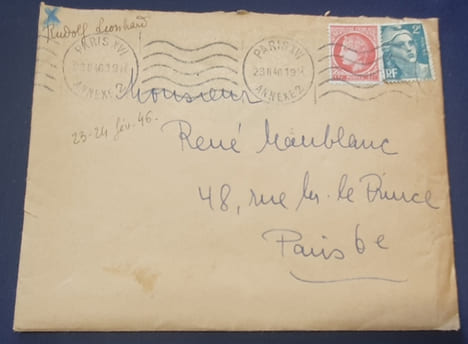 Rudolf Leonhard
PARIS XVI
23 II 46.19H
ANNEXE 2
PARIS XVI
23 II 46.19H
ANNEXE 2
2F
RF
Monsieur
23-24 fév. 46.
René Maublanc
48, rue Mr. le Prince
Paris 6e